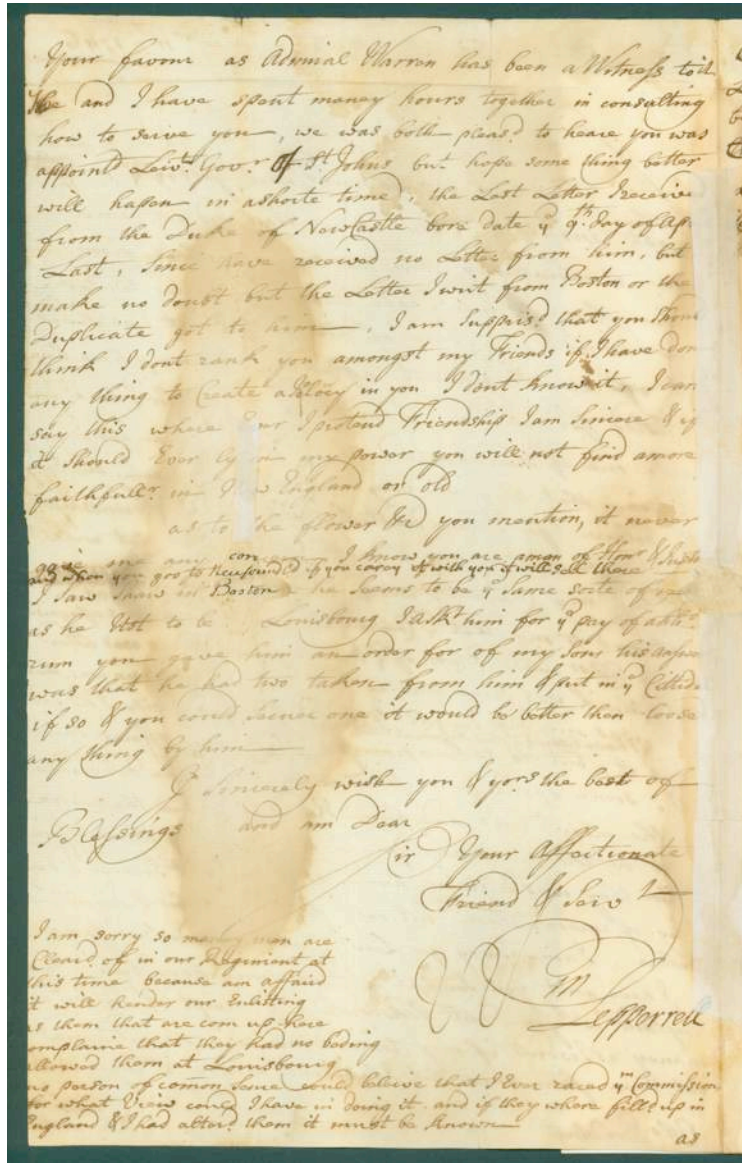 Your favour as Admiral Warren has been a Witness to it
He and I have spent maney hours together in consulting
how to serve you, we was both pleasd to heare you was
appointd Leivt Govr of St Johns but hope some thing better
will hapen in a shorte time, the Last Letter I receive
from the Duke of NewCastle bore date ye 9th day of Ap
Last, Since have received no Letter from him, but
make no doubt but the Letter I writ from Boston or the
Duplicate got to him, I am Supprisd that you Shou
think I dont rank you amongst my Friends if I have don
any thing to Create a in you I dont know it, I can
say this where Ever I pretend Friendship I am Sincere & if
it Should Ever ly in my power you will not find a more
faithfull in New England or old
as to the flower &c you mention, it never
gave me any con I know you are a man of Honr &
and when you goo to if you carey it with you it will sell there
I saw in Boston & he Seems to be ye Same sorte of
as he Ust to be Louisbourg I askt him for ye pay of
rum you gave him an order for of my Sons his answ
was that he had two taken from him & put in ye Cittid
if so & you could Secuer one it would be better then loose
any thing by him
I Sincerely wish you & yors the best of
Blessings and am Dear
Sir Your Affectionate
Friend & Servt
Wm Pepperrell
I am sorry so maney men are
Cleard of in our Regiment at
this time because am affraid
it will hender our Enlisting
as them that are com up here
omplaine that they had no beding
allowed them at Louisbourg
no person of comon Sence could beleive that I Ever ym Commission
for what View could I have in doing it and if they where filld up in
England & I had alterd them it must be known
as